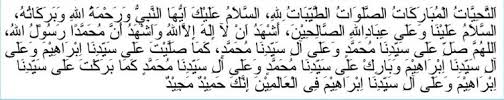 التَّحِيَّاتُ المُبَارَكَاتُ الصَّلَوَاتُ الطَّيِّبَاتُ لِلهِ، السَّلَامُ عَلَيْكَ أَيُّهَا النَّبِيُّ وَرَحْمَةُ اللهِ وَبَرَكَاتُهُ،
السَّلَامُ عَلَيْنَا وَعَلَى عِبَادِاللهِ الصَّالِحِيْنَ، أَشْهَدُ اَنْ لَا إِلَهَ إِلَّااللهُ وَأَشْهَدُ اَنَّ مُحَمَّدًا رَسُوْلُ اللهِ،
اللهُمَّ صَلِّ عَلَى سَيِّدِنَا مُحَمَّدٍ وَعَلَى آلِ سَيِّدِنَا مُحَمَّدٍ، كَمَا صَلَّيْتَ عَلَى سَيِّدِنَا اِبْرَاهِيْمَ وَعَلَى
آلِ سَيِّدِنَا اِبْرَاهِيْمَ وَبَارِكْ عَلَى سَيِّدِنَا مُحَمَّدٍ وَعَلَى آلِ سَيِّدِنَا مُحَمَّدٍ كَمَا بَرَكْتَ عَلَى سَيِّدِنَا
اِبْرَاهِيْمَ وَعَلَى آلِ سَيِّدِنَا اِبْرَاهِيْمَ فِى الْعَالَمِيْنَ اِنَّكَ حَمِيْدٌ مَجِيْدٌ